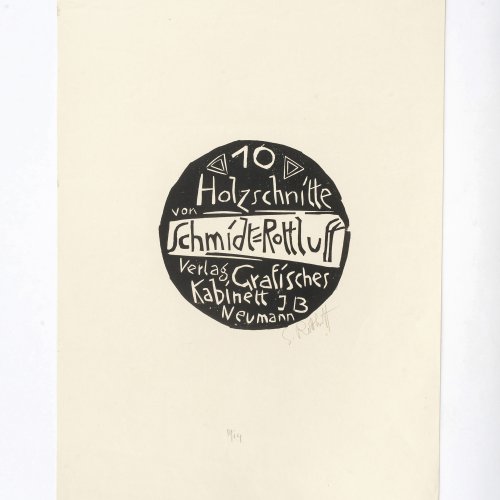 10
Holzschnitte
von
Schmidt=Rottluff
Verlag, Grafisches
Kabinett J B
Neumann
S. Rottluff